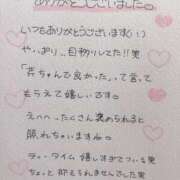 ありがとうございました
いつもありがとうございます(˙˙)
や、ぱり、目移りしてた!!笑
「芹ちゃんで良かった」って言って
もらえて嬉しいです
えへへ、たくさん褒められると
照れちゃいます
ティータイム嬉しすぎている笑
ちょっと抑えられませんでした